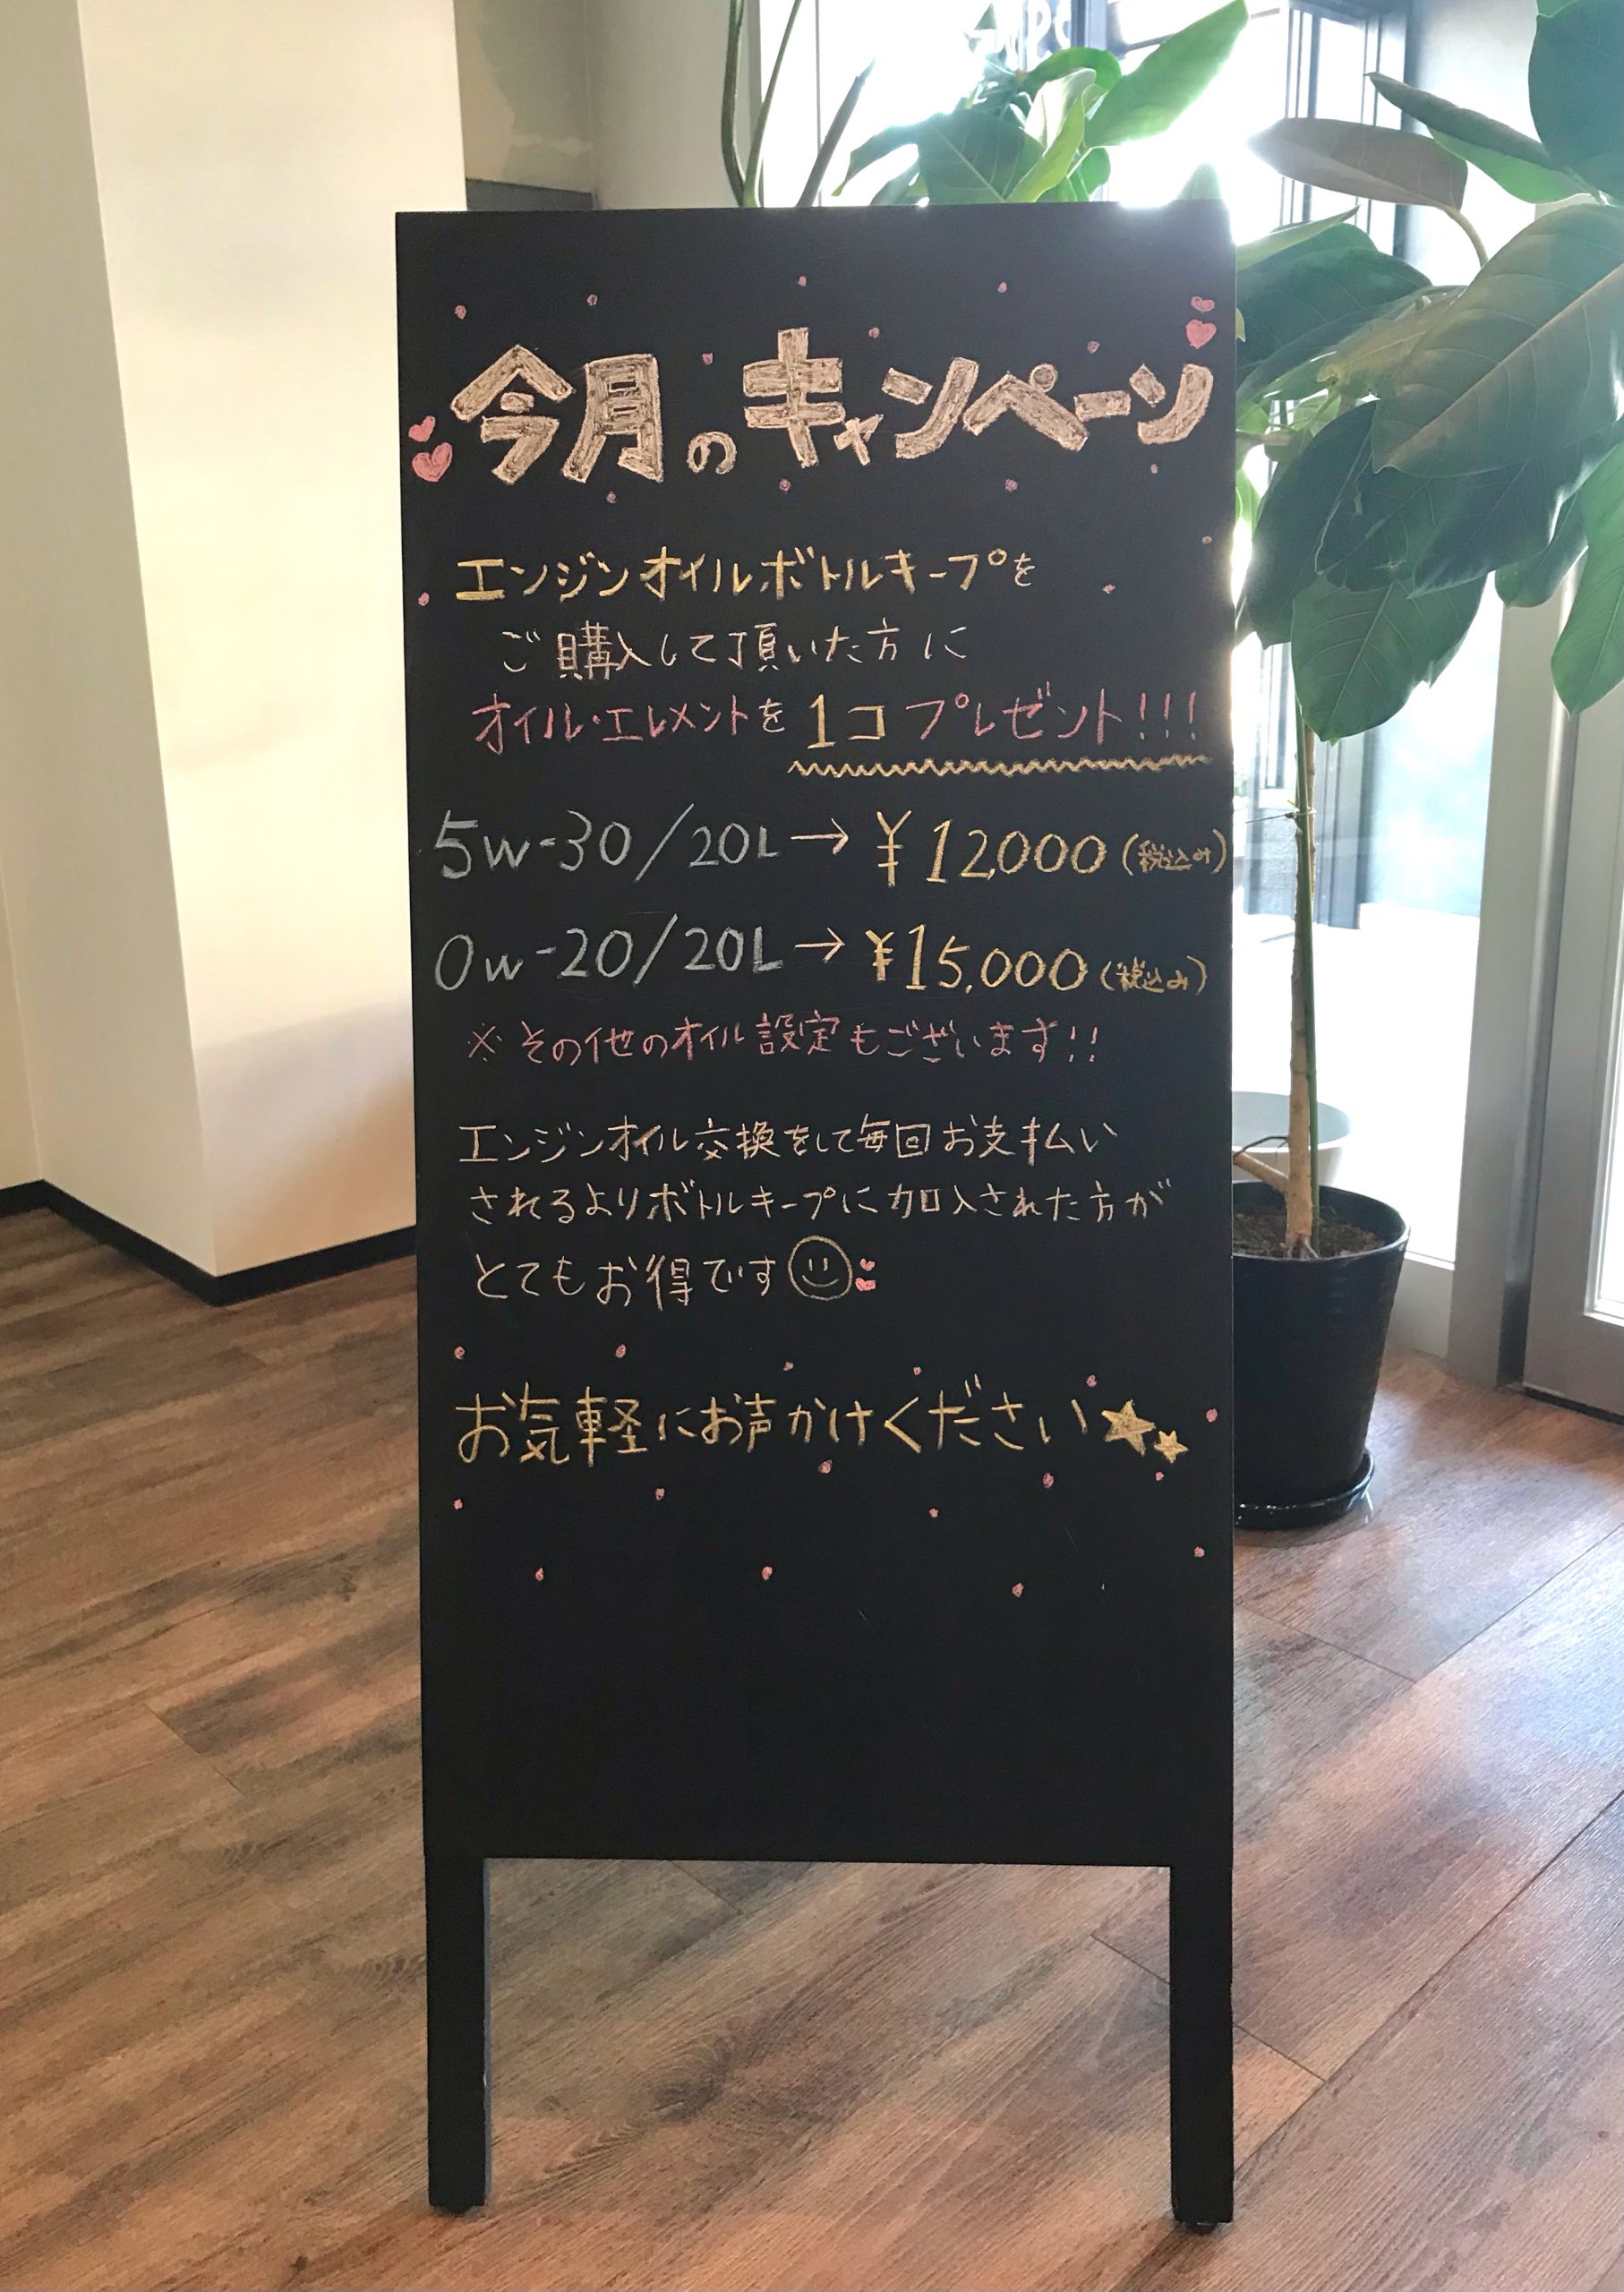 今月のキャンペーン
エンジンオイルボトルキープを
ご購入して頂いた方に
オイル・エレメントを1コプレゼント!!!
5w-30/20L→¥12,000(税込み)
0w-20/20L→¥15,000(税込み)
※その他のオイル設定もございます!!
エンジンオイル交換をして毎回お支払い
されるよりボトルキープに加入された方が
とてもお得です
お気軽にお声かけください★★